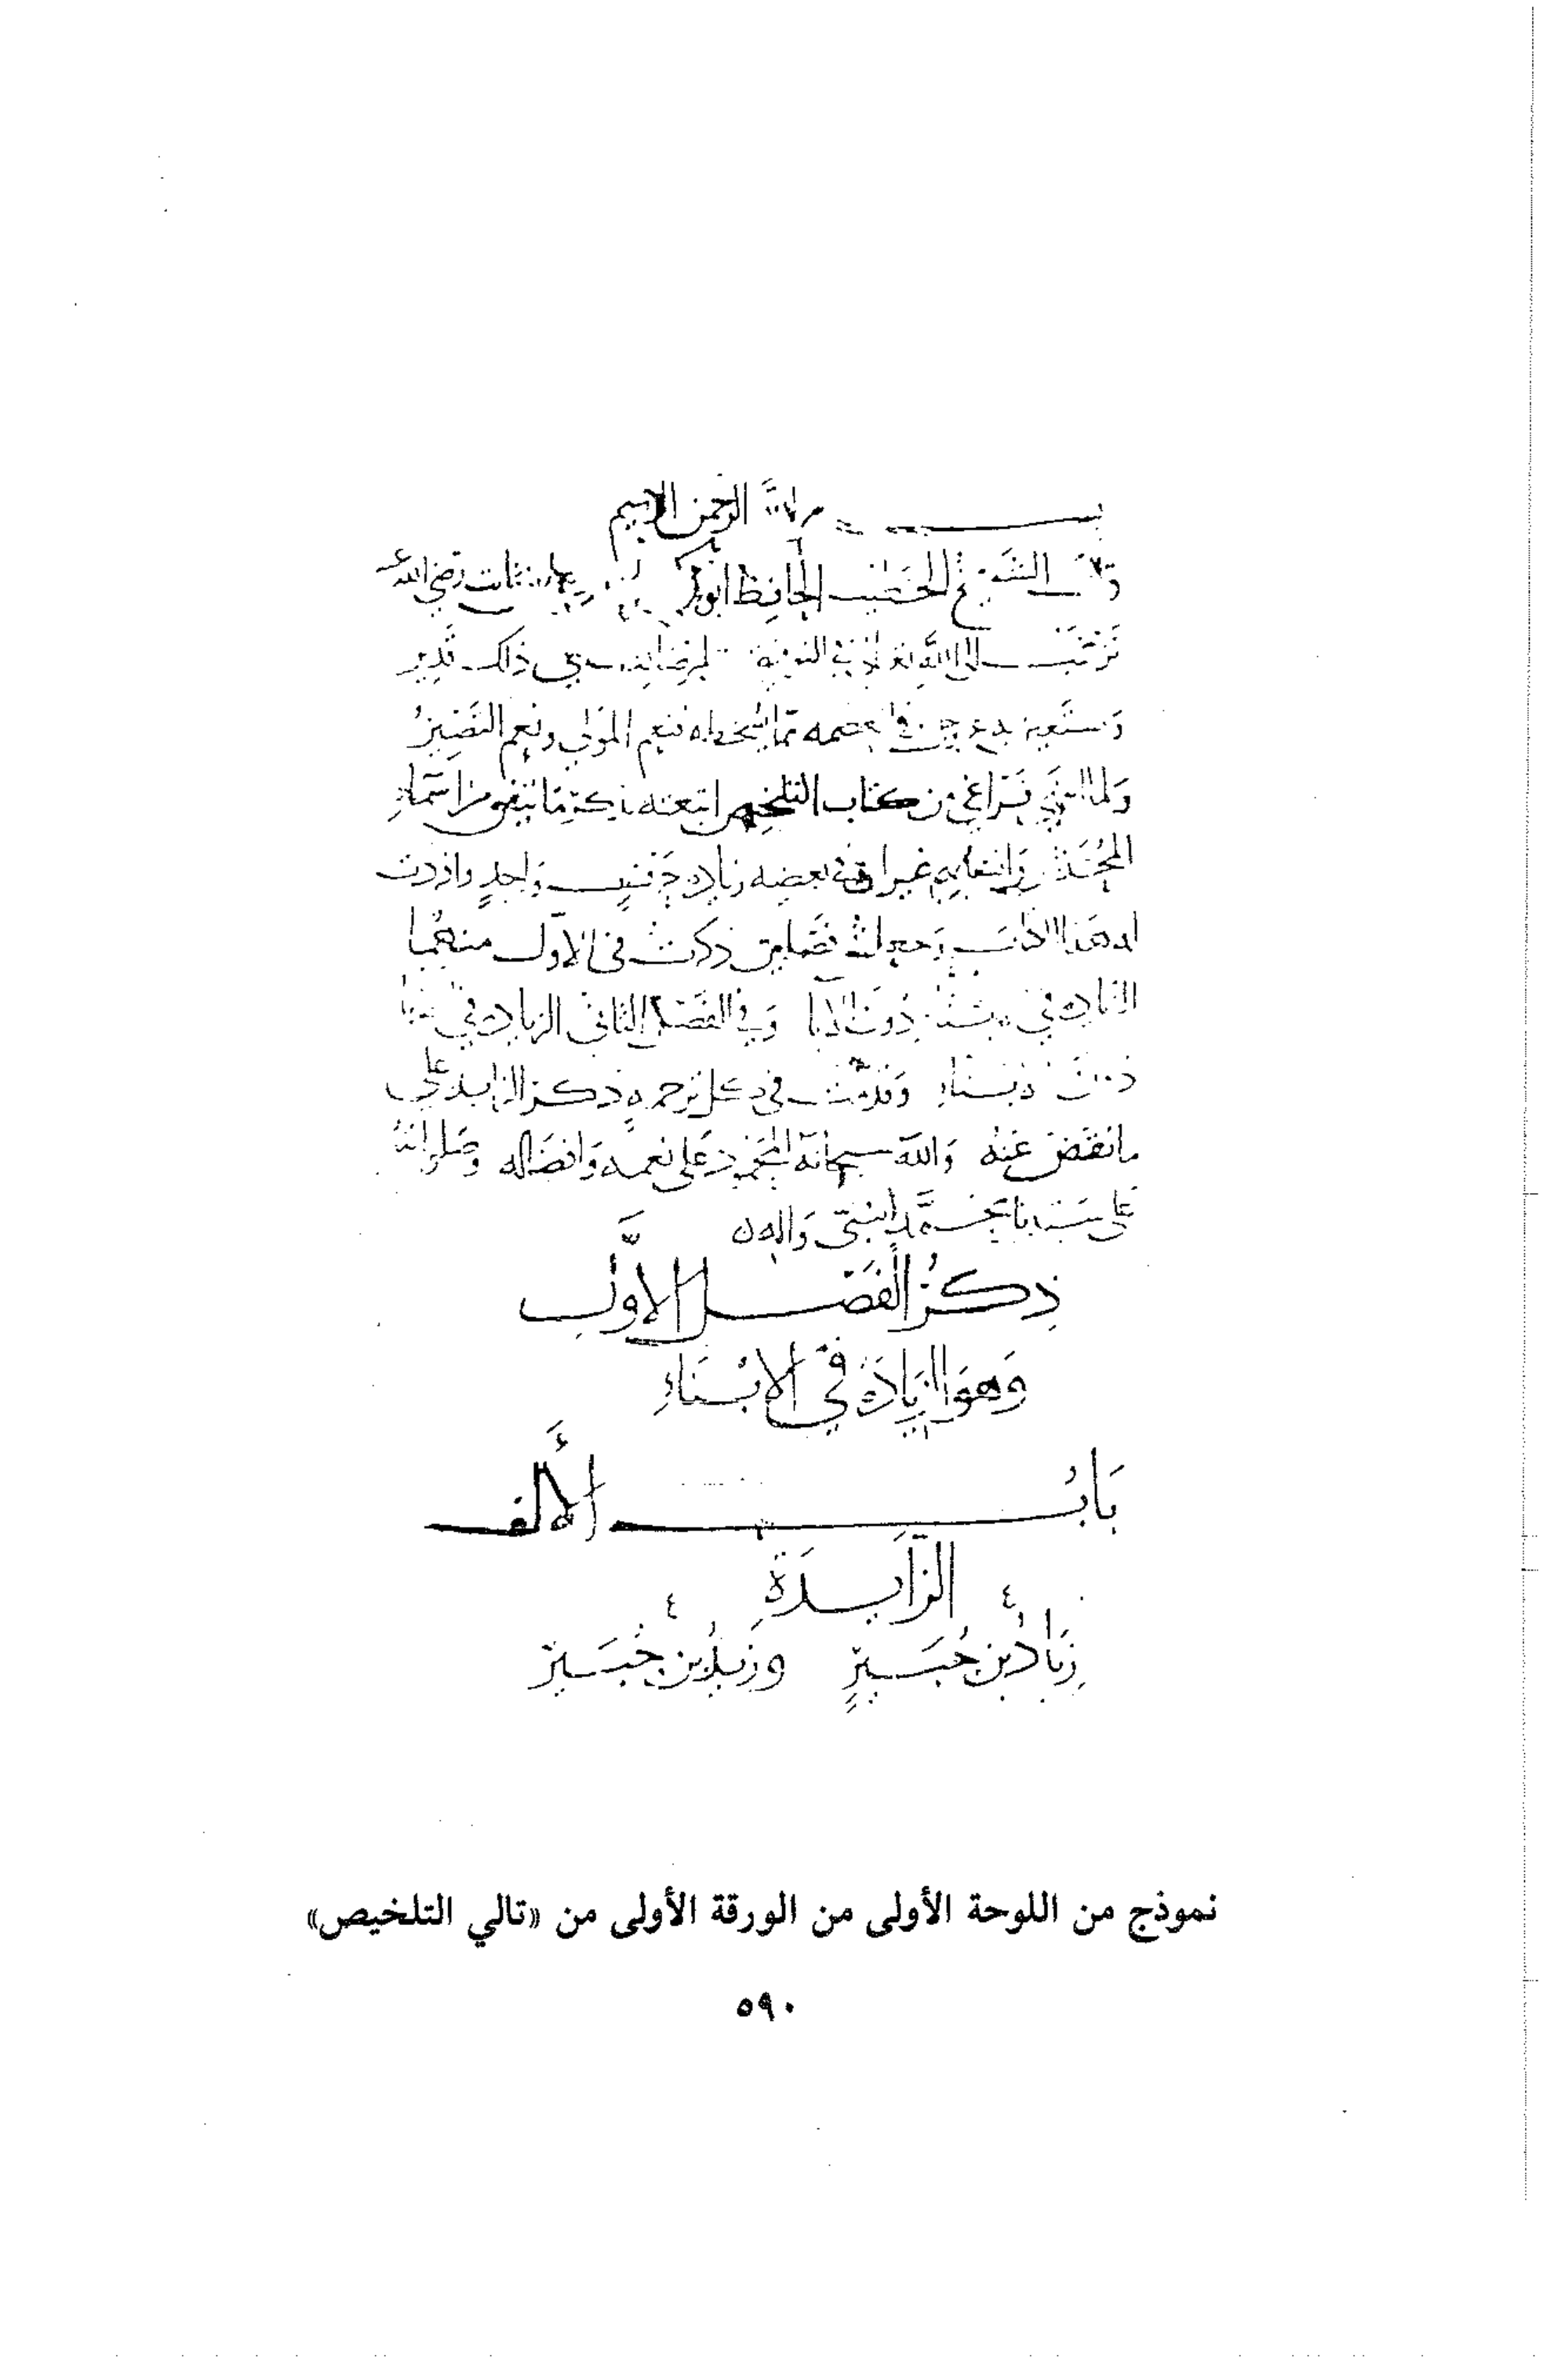 بسم الله الرحمن الرحيم
قال الشيخ الخطيب الحافظ ابو بكر بن ثابت رضي الله عنه
نرغب الى الله في التوفيق ذلك قدير
ونستعينه فنعم المولى ونعم النصير
ولما انتهى فراغي من كتاب التلخيص اتبعته بذكر ما يتفق من اسماء
المحدثين وانسابهم غير ان في بعضه زيادة حرف واحد وافردت
له هذا الكتاب وجعلته فصلين ذكرت في الاول منهما
الزيادة في دون الابا وفي الفصل الثاني الزيادة في
دون الابناء وقدمت في كل ترجمة ذكر الزايد على
ما نقص عنه والله سبحانه المحمود على نعمه وافضاله وصلواته
على سيدنا محمد النبي واله
ذكر الفصل الاول
وهو الزيادة في الابناء
باب الألف
الزايدة
زياد بن جبير وزيد بن جبير
نموذج من اللوحة الأولى من الورقة الأولى من «تالي التلخيص»
٥٩٠